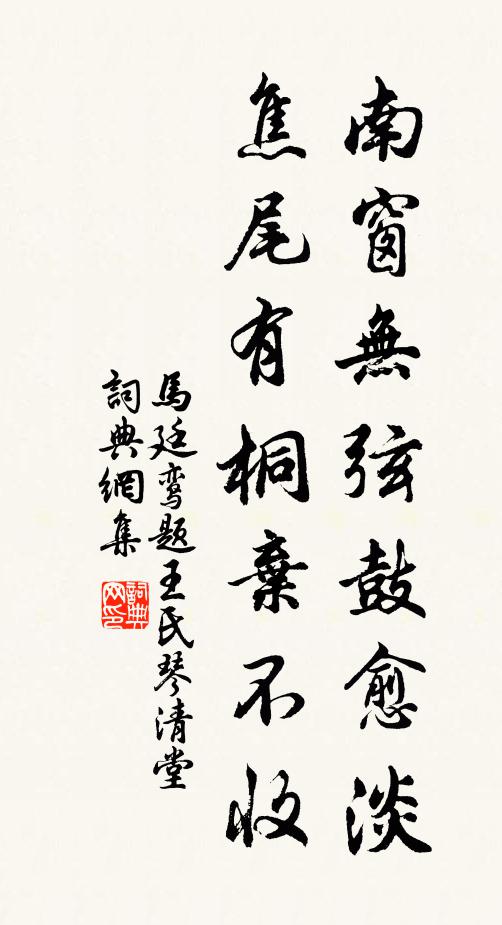 南窗無弦鼓愈淡
焦尾有桐棄不收
馬廷鸾题王氏琴清堂
詞典網集
詞典网印